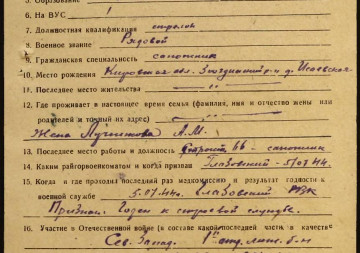 5. Образование
6. На ВУС 1
7. Должностная квалификация стрелок
8. Военное звание Рядовой
9. Гражданская специальность сапожник
10. Место рождения Кировская обл. Зюздинский р-н д. Исаевская
11. Последнее место жительства — „ —
12. Где проживает в настоящее время семья (фамилия, имя и отчество жены или
родителей и точный их адрес) — „ —
Жена А. М.
13. Последнее место работы и должность ББ - сапожник
14. Каким райгорвоенкоматом и когда призван Глазовский - 5/07 44.
15. Когда и где проходил последний раз медкомиссию и результат годности к
военной службе 5.07.44г. Глазовский РВК
Признан. Годен к строевой службе.
16. Участие в Отечественной войне (в составе какой последней части, в качестве
Сев. Запад. 1